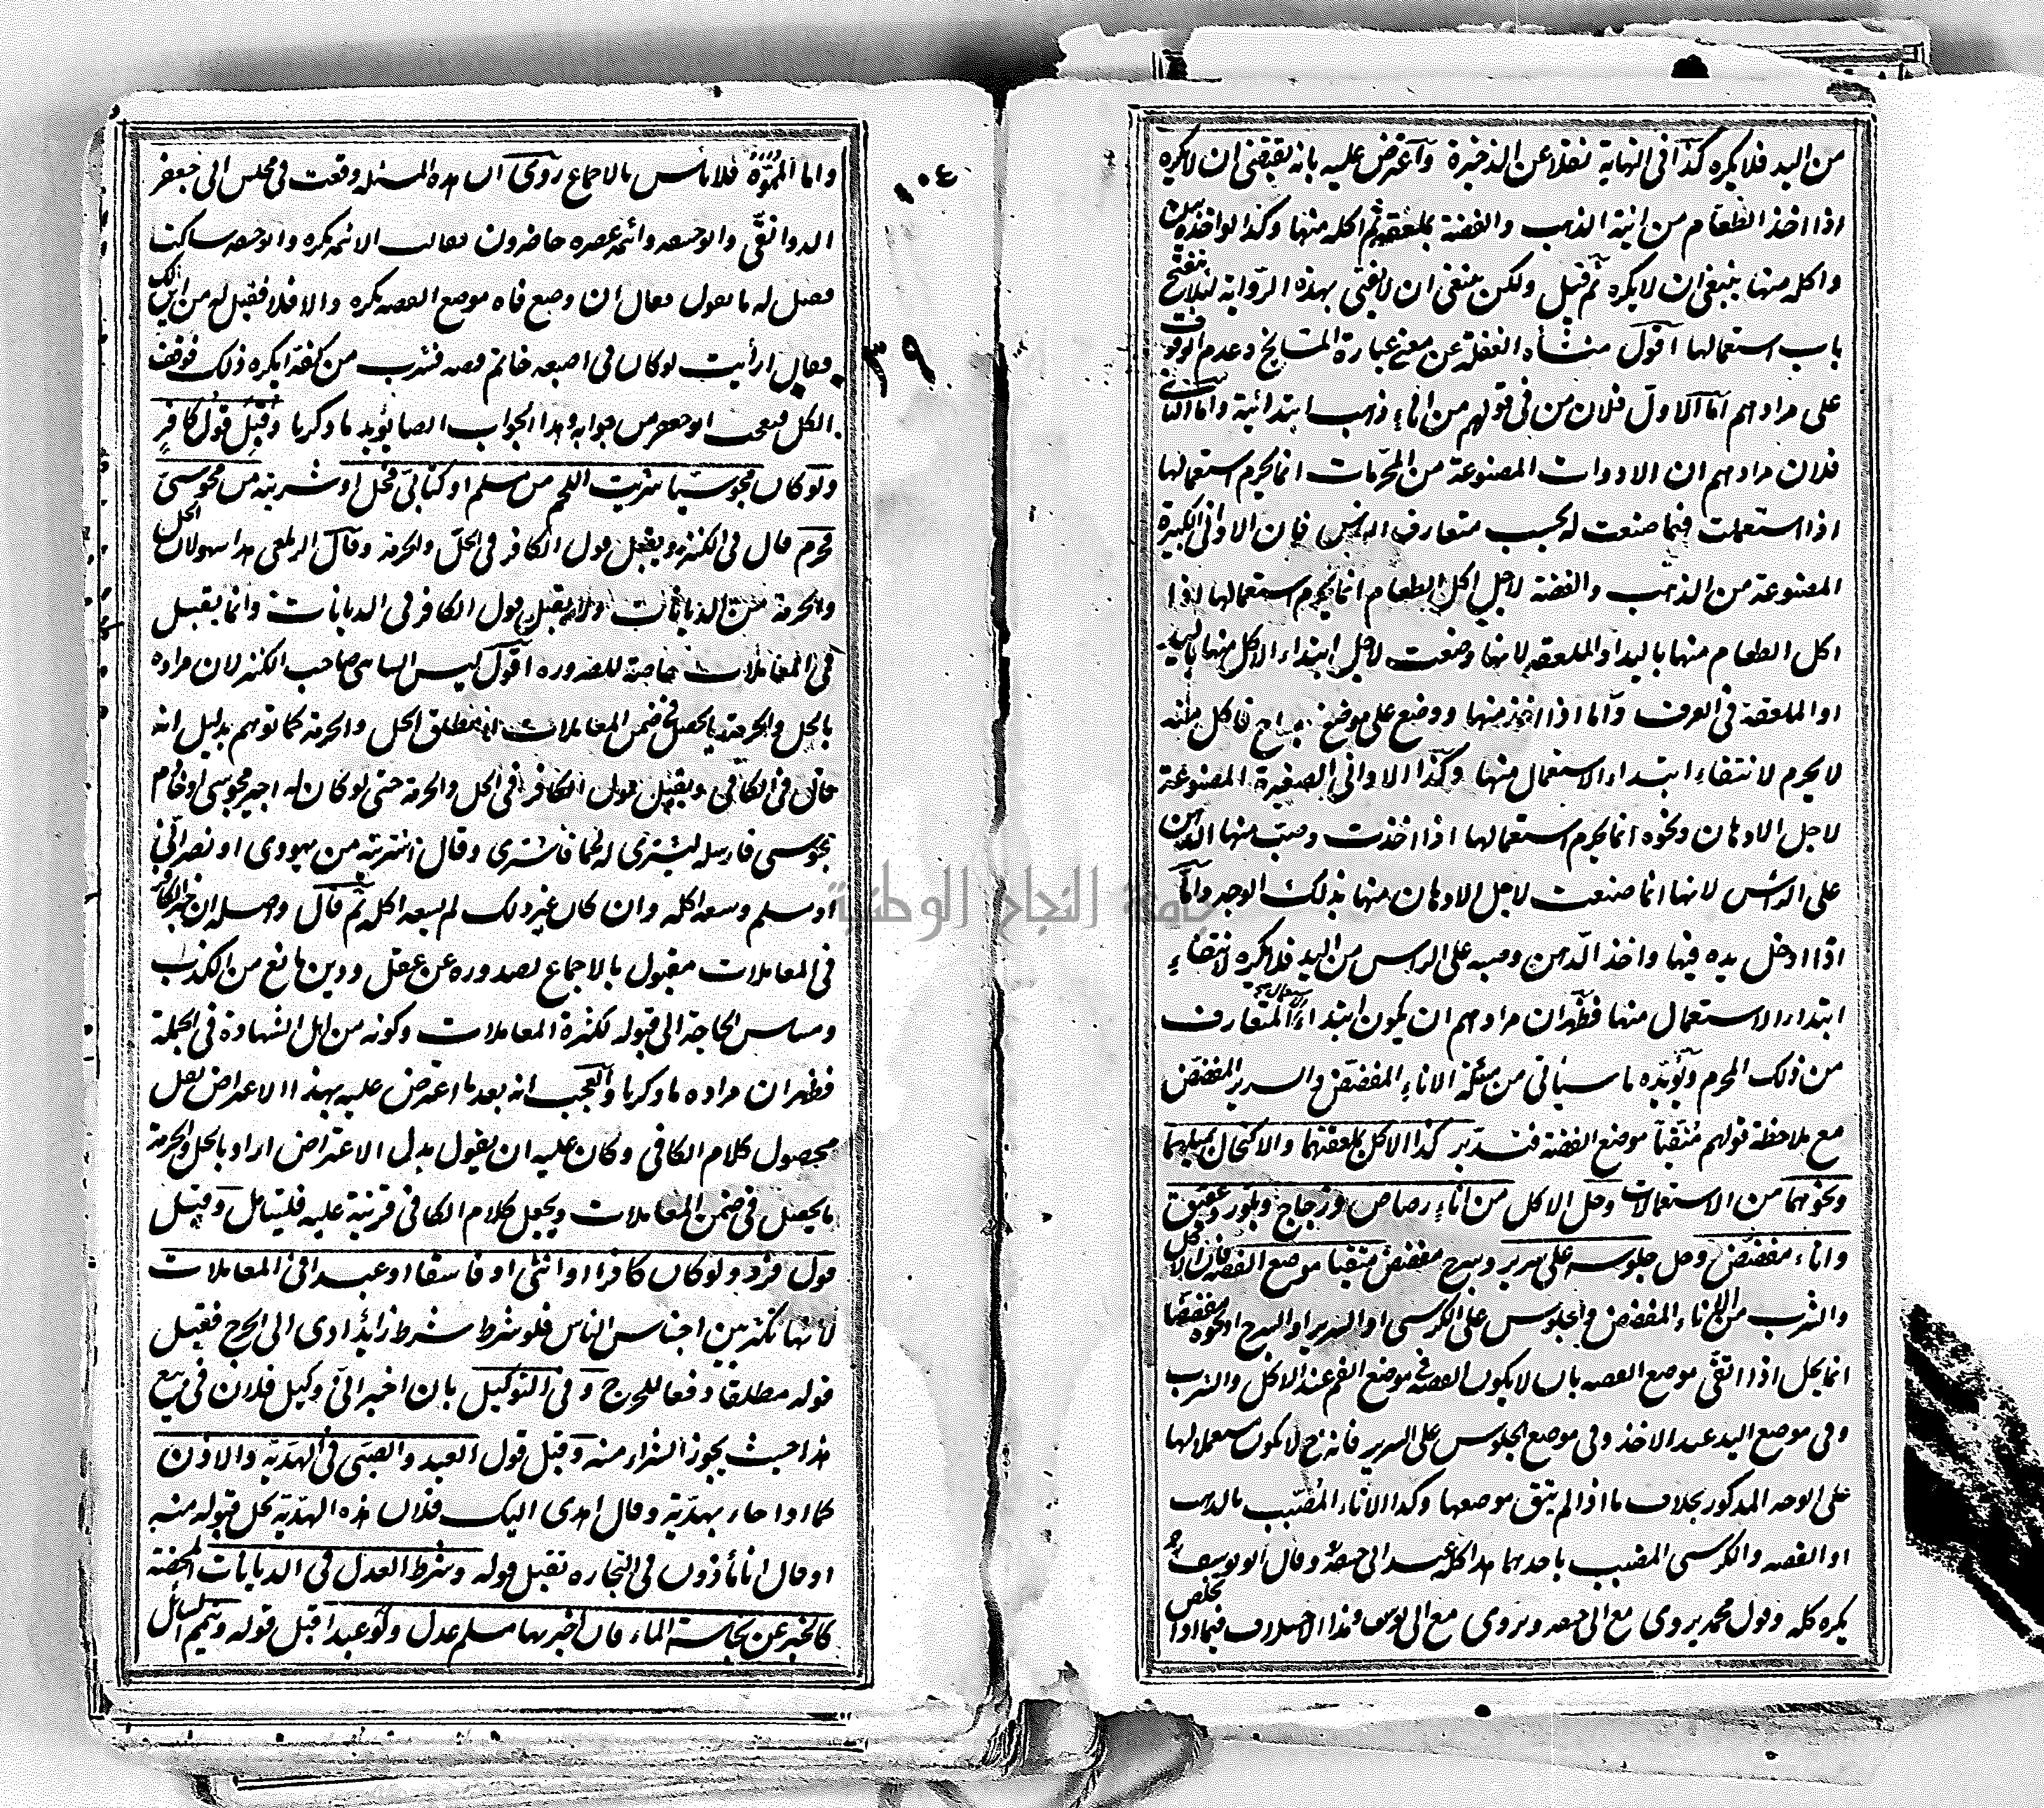 من اليد فلا يكره كذا فى النهاية نقلا عن الذخيرة واعترض عليه بانه يقتضى ان لا يكره
اذا اخذ الطعام من انية الذهب والفضة بملعقة ثم اكله منها وكذا لو اخذه بيده
واكله منها ينبغى ان لا يكره ثم قيل ولكن ينبغى ان لا يفتى بهذه الرواية لئلا ينفتح
باب استعمالها اقول منشأه الغفلة عن معنى عبارة المشايخ وعدم الوقوف
على مرادهم اما الاول فلان من فى قولهم من اناء ذهب ابتدائية واما الثانى
فلان مرادهم ان الادوات المصنوعة من المحرمات انما يحرم استعمالها
اذا استعملت فيما صنعت له بحسب متعارف الناس فان الاوانى الكبيرة
المصنوعة من الذهب والفضة لاجل اكل الطعام انما يحرم استعمالها اذا
اكل الطعام منها باليد او الملعقة لانها وضعت لاجل ابتداء الاكل منها باليد
او الملعقة فى العرف واما اذا اخذ منها ووضع على موضع مباح فاكل منه
لا يحرم لانتفاء ابتداء الاستعمال منها وكذا الاوانى الصغيرة المصنوعة
لاجل الادهان ونحوه انما يحرم استعمالها اذا اخذت وصب منها الدهن
على الراس لانها انما صنعت لاجل الادهان منها بذلك الوجه واما
اذا ادخل يده فيها واخذ الدهن وصبه على الراس من اليد فلا يكره لانتفاء
ابتداء الاستعمال منها فظهر ان مرادهم ان يكون ابتداء الاستعمال المتعارف
من ذلك المحرم ويؤيده ما سياتى من مسئلة الاناء المفضض والسرير المفضض
مع ملاحظة قولهم متقيا موضع الفضة فتدبر كذا الاكل بملعقتهما والاكتحال بميلهما
ونحوهما من الاستعمالات وحل الاكل من اناء رصاص وزجاج وبلور وعقيق
واناء مفضض وحل جلوسه على سرير وسرج مفضض متقيا موضع الفضة فان الاكل
والشرب من الاناء المفضض والجلوس على الكرسى او السرير او السرج او نحوه مفضضا
انما يحل اذا اتقى موضع الفضة بان لا يكون الفضة فى موضع الفم عند الاكل والشرب
وفى موضع اليد عند الاخذ وفى موضع الجلوس على السرير فانه ح لا يكون مستعملا لها
على الوجه المذكور بخلاف ما اذا لم يتق موضعها وكذا الاناء المضبب بالذهب
او الفضة والكرسى المضبب باحدهما هذا كله عند ابى حنيفة وقال ابو يوسف
يكره كله وقول محمد يروى مع ابى حنيفة ويروى مع ابى يوسف وهذا الاختلاف فيما اذا يخلص
١٠٤
٣٩
واما المموه فلا بأس بالاجماع روى ان هذه المسئلة وقعت فى مجلس ابى جعفر
الدوانقى وابو حنيفة وائمة عصره حاضرون فقالت الائمة يكره وابو حنيفة ساكت
فقيل له ما تقول فقال ان وضع فاه موضع الفضة يكره والا فلا فقيل له من اين لك
فقال ارأيت لو كان فى اصبعه خاتم فضة فشرب من كفه ايكره ذلك فوقف
الكل فتعجب ابو جعفر من جوابه وهذا الجواب ايضا يؤيد ما ذكرنا وقبل قول كافر
ولو كان مجوسيا شريت اللحم من مسلم او كتابى فحل او شريته من مجوسى
فحرم قال فى الكنز ويقبل قول الكافر فى الحل والحرمة وقال الزيلعى هذا سهو لان الحل
والحرمة من الديانات ولا يقبل قول الكافر فى الديانات وانما يقبل
فى المعاملات خاصة للضرورة اقول ليس الساهى صاحب الكنز لان مراده
بالحل والحرمة ما يحصل فى ضمن المعاملات لا مطلق الحل والحرمة كما توهم بدليل انه
قال فى الكافى ويقبل قول الكافر فى الحل والحرمة حتى لو كان له اجير مجوسى او خادم
مجوسى فارسله ليشترى له لحما فاشترى وقال اشتريته من يهودى او نصرانى
او مسلم وسعه اكله وان كان غير ذلك لم يسعه اكله ثم قال واصله ان خبر الكافر
فى المعاملات مقبول بالاجماع لصدوره عن عقل ودين مانع من الكذب
ومساس الحاجة الى قبوله لكثرة المعاملات وكونه من اهل الشهادة فى الجملة
فظهر ان مراده ما ذكرنا والعجب انه بعد ما اعترض عليه بهذا الاعتراض نقل
محصول كلام الكافى وكان عليه ان يقول بدل الاعتراض اراد بالحل والحرمة
ما يحصل فى ضمن المعاملات ويجعل كلام الكافى قرينة عليه فليتامل وقبل
قول فرد ولو كان كافرا او انثى او فاسقا او عبدا فى المعاملات
لانها تكثر بين اجناس الناس فلو شرط شرط زائد ادى الى الحرج فقبل
قوله مطلقا دفعا للحرج وفى التوكيل بان اخبر انى وكيل فلان فى بيع
هذا حيث يجوز الشراء منه وقبل قول العبد والصبى فى الهدية والاذن
كما اذا جاء بهدية وقال اهدى اليك فلان هذه الهدية يحل قبوله منه
او قال انا مأذون فى التجارة يقبل قوله وشرط العدل فى الديانات المحضة
كالخبر عن نجاسة الماء فان اخبر بها مسلم عدل ولو عبدا قبل قوله ويتيمم السائل
جامعة النجاح الوطنية